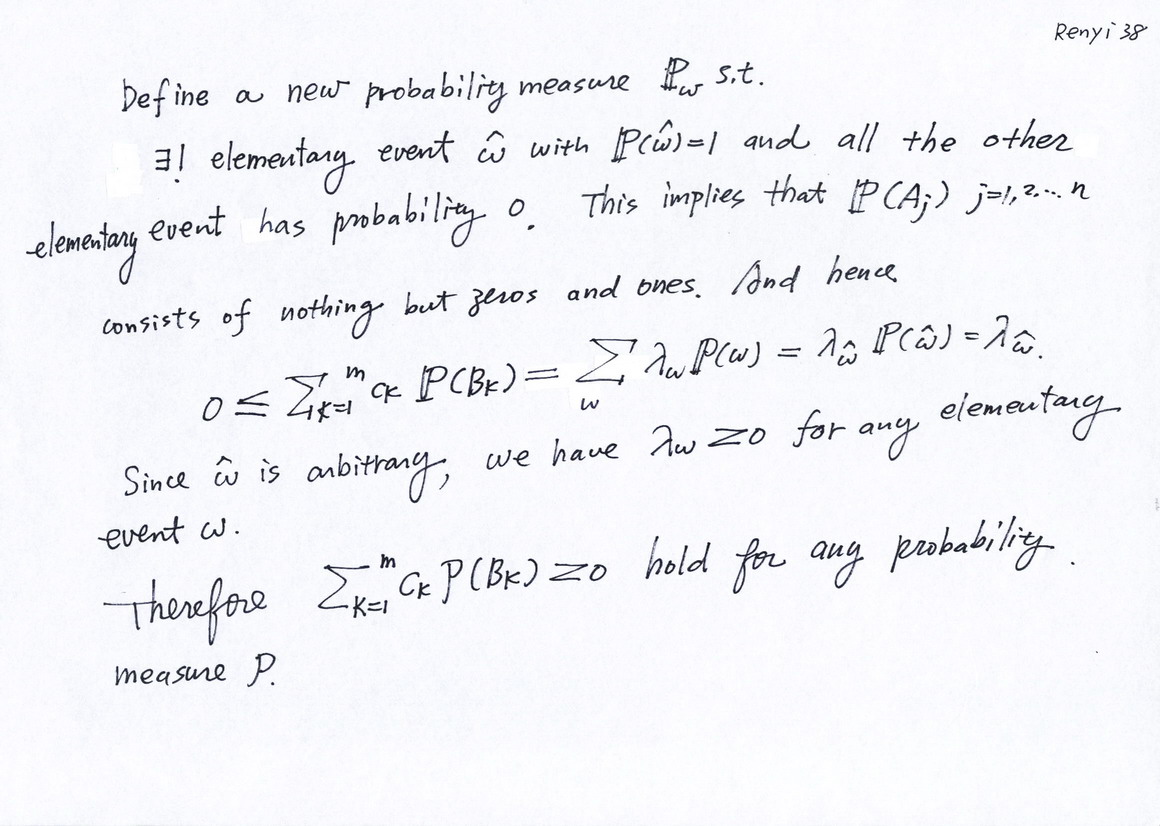 Renyi 38
Define a new probability measure ℙ_w s.t.
∃! elementary event ŵ with ℙ(ŵ)=1 and all the other
elementary event has probability 0. This implies that ℙ(A_j) j=1,2,...n
consists of nothing but zeros and ones. And hence
0 ≤ Σ_{k=1}^m c_k ℙ(B_k) = Σ_w λ_w ℙ(w) = λ_ŵ ℙ(ŵ) = λ_ŵ.
Since ŵ is arbitrary, we have λ_w ≥0 for any elementary
event w.
Therefore Σ_{k=1}^m C_k P(B_k) ≥0 hold for any probability
measure P.